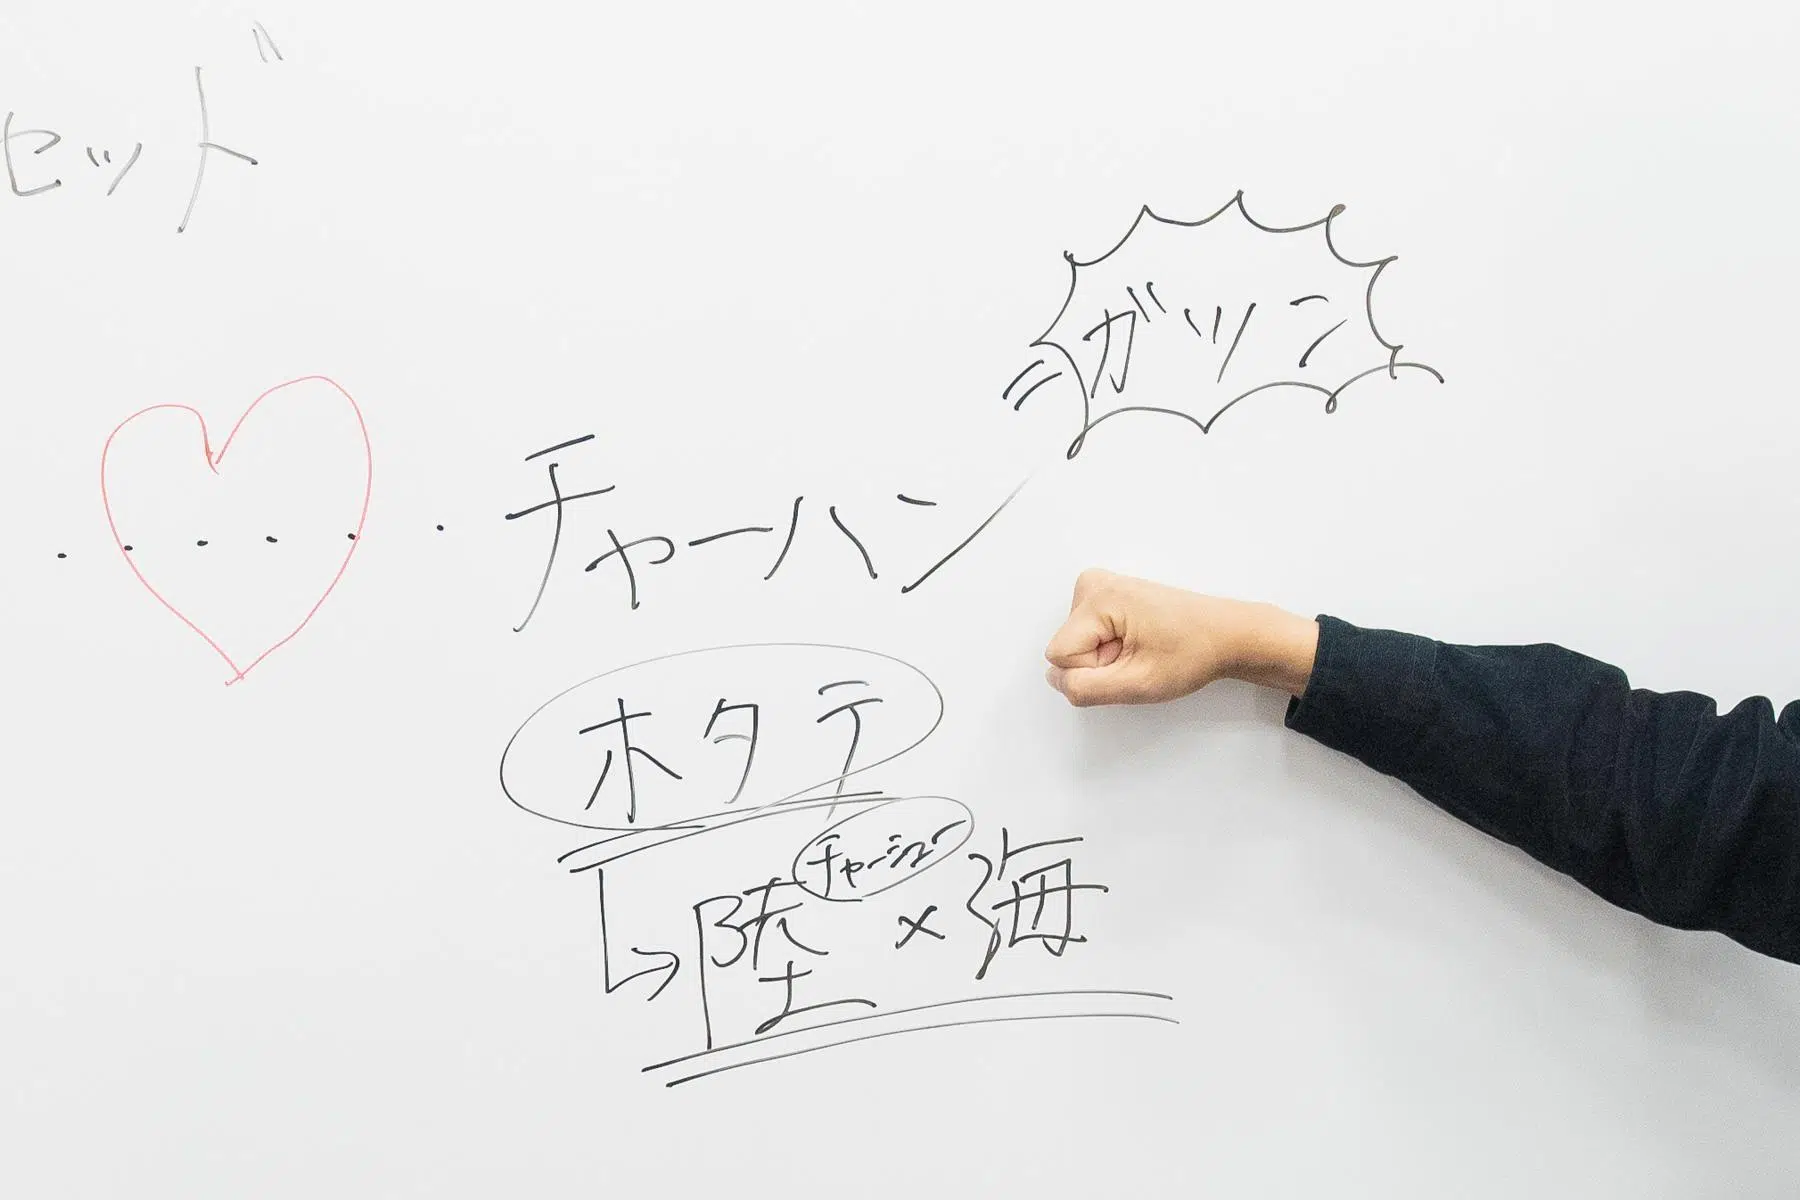 セッド
ガツン
・・・・・・チャーハン
ホタテ
チャーシュー
陸×海